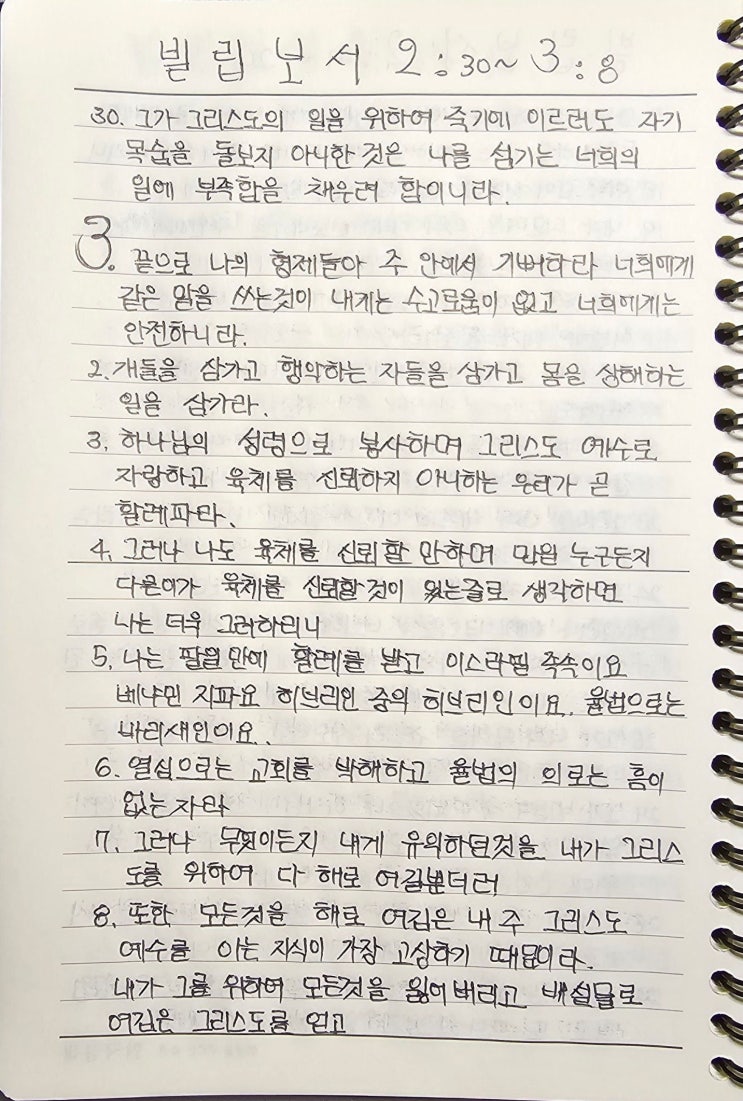 빌립보서 2:30~3:8
30. 그가 그리스도의 일을 위하여 죽기에 이르러도 자기
목숨을 돌보지 아니한 것은 나를 섬기는 너희의
일에 부족함을 채우려 함이니라.
3. 끝으로 나의 형제들아 주 안에서 기뻐하라 너희에게
같은 말을 쓰는것이 내게는 수고로움이 없고 너희에게는
안전하니라.
2. 개들을 삼가고 행악하는 자들을 삼가고 몸을 상해하는
일을 삼가라.
3. 하나님의 성령으로 봉사하며 그리스도 예수로
자랑하고 육체를 신뢰하지 아니하는 우리가 곧
할례파라.
4. 그러나 나도 육체를 신뢰할 만하며 만일 누구든지
다른이가 육체를 신뢰할것이 있는줄로 생각하면
나는 더욱 그러하리니
5. 나는 팔일만에 할례를 받고 이스라엘 족속이요
베냐민 지파요 히브리인 중의 히브리인이요. 율법으로는
바리새인이요.
6. 열심으로는 교회를 박해하고 율법의 의로는 흠이
없는자라
7. 그러나 무엇이든지 내게 유익하던것을 내가 그리스
도를 위하여 다 해로 여길뿐더러
8. 또한 모든것을 해로 여김은 내 주 그리스도
예수를 아는 지식이 가장 고상하기 때문이라.
내가 그를 위하여 모든것을 잃어버리고 배설물로
여김은 그리스도를 얻고